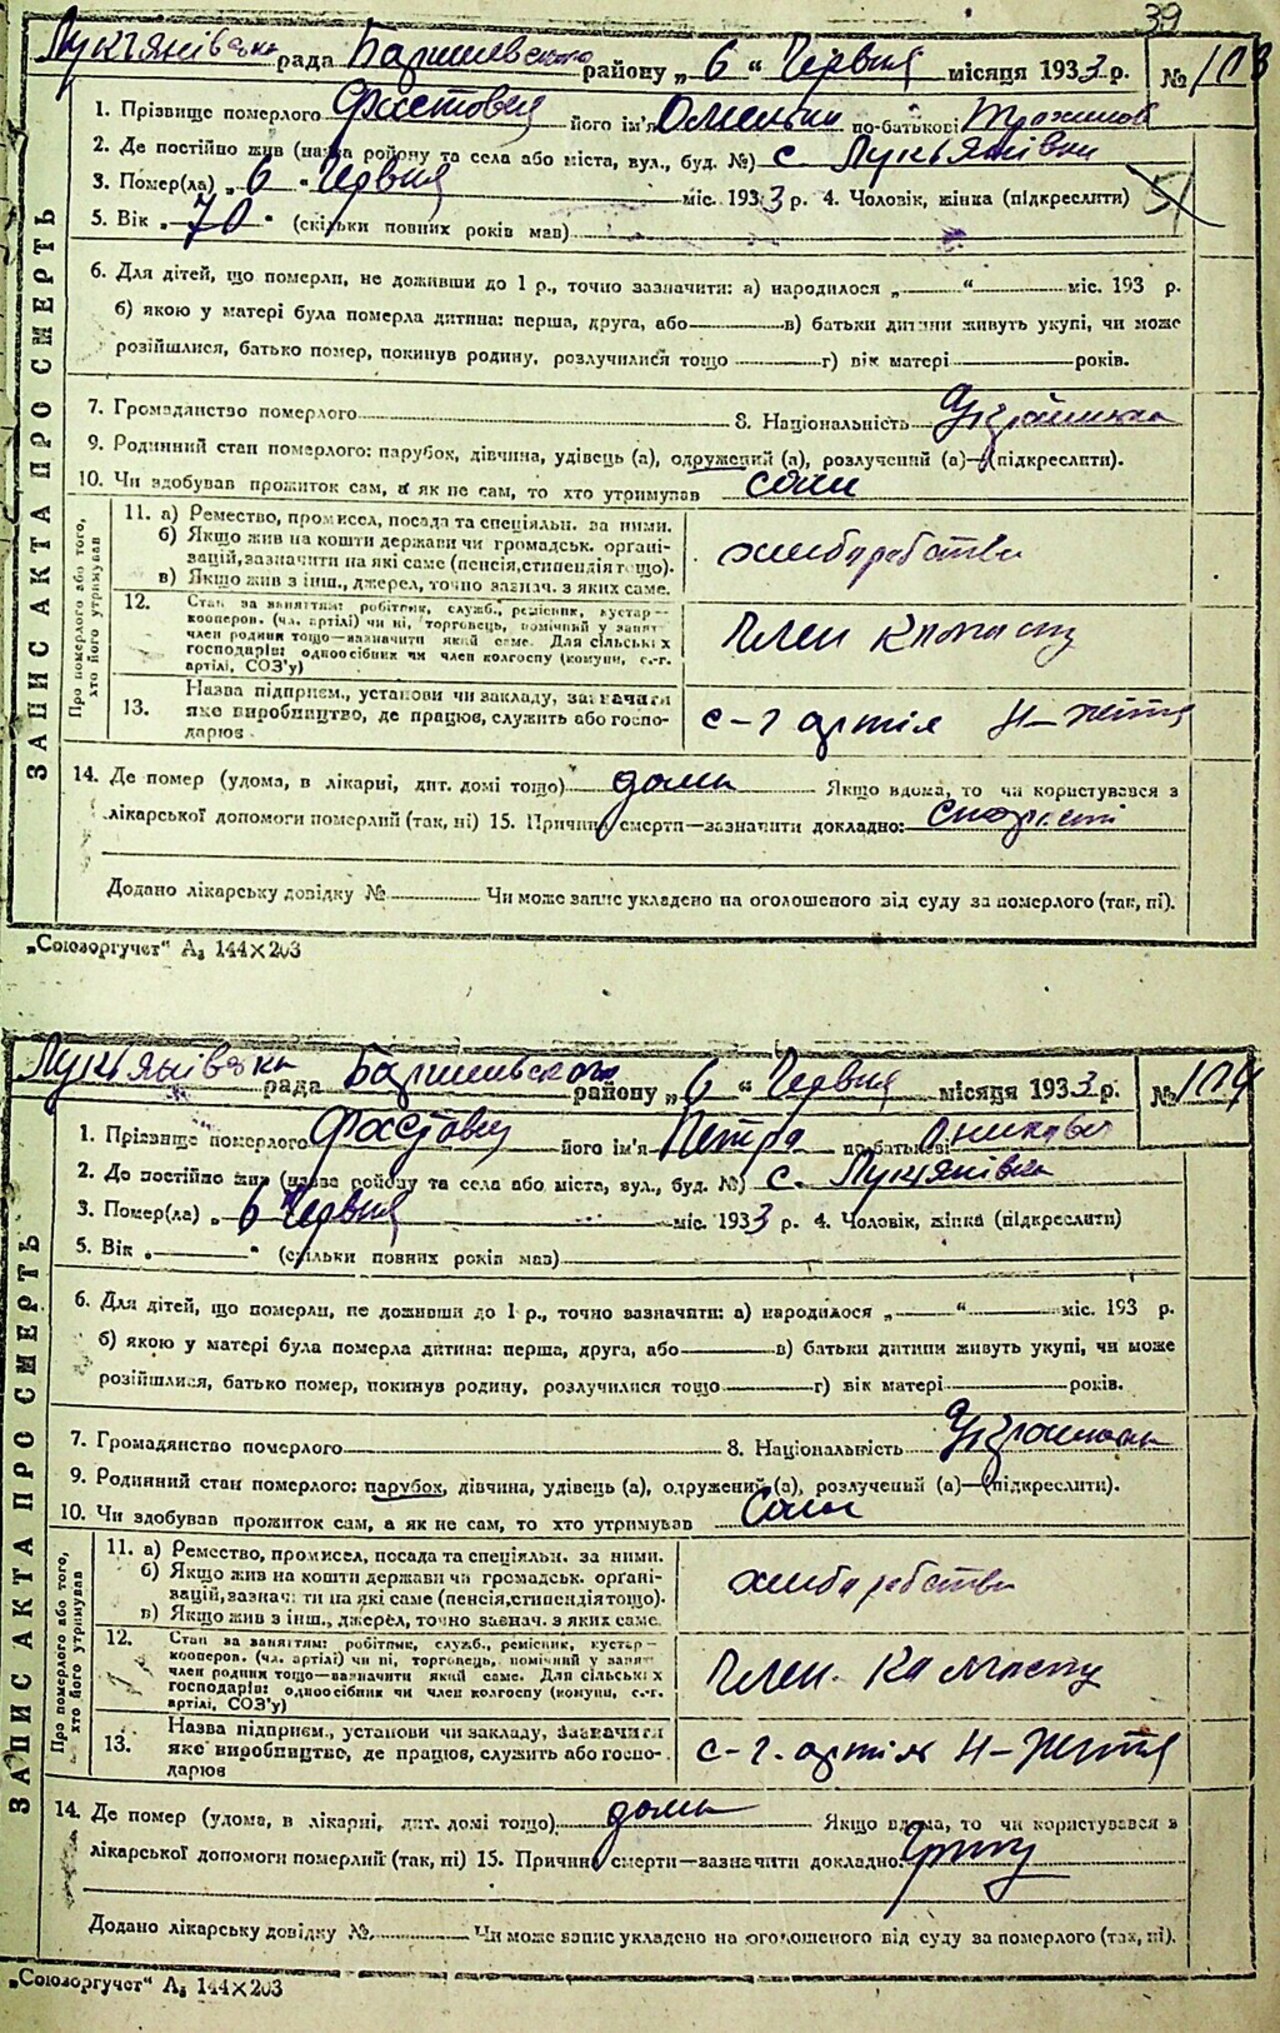 39
Лукʼянівська рада Баришевського району „ 6 “ Червня місяця 1933 р. № 103
1. Прізвище померлого Фастовец його ім'я Омелько по-батькові
2. Де постійно жив (назва району та села або міста, вул., буд. №) с. Лукьянівки
3. Помер(ла) „ 6 “ Червня міс. 1933 р. 4. Чоловік, жінка (підкреслити)
5. Вік „ 70 “ (скільки повних років мав)
6. Для дітей, що померли, не доживши до 1 р., точно зазначити: а) народилося „ “ міс. 193 р.
б) якою у матері була померла дитина: перша, друга, або в) батьки дитини живуть укупі, чи може
розійшлися, батько помер, покинув родину, розлучилися тощо г) вік матері років.
7. Громадянство померлого 8. Національність Українка
9. Родинний стан померлого: парубок, дівчина, удівець (а), одружений (а), розлучений (а)—(підкреслити).
10. Чи здобував прожиток сам, а як не сам, то хто утримував сам
ЗАПИС АКТА ПРО СМЕРТЬ
Про померлого або того, хто його утримував
11. а) Ремество, промисел, посада та спеціяльн. за ними.
б) Якщо жив на кошти держави чи громадськ. органі-
зацій, зазначити на які саме (пенсія, стипендія тощо).
в) Якщо жив з інш., джерел, точно зазнач. з яких саме.
хліборобство
12. Стан за заняттям: робітник, служб., ремісник, кустар—
кооперов. (чл. артілі) чи ні, торговець, помічний у занят
член родини тощо—зазначити який саме. Для сільських
господарів: одноосібник чи член колгоспу (комуни, с.-г.
артілі, СОЗ'у)
член
13. Назва підприєм., установи чи закладу, зазначити
яке виробництво, де працює, служить або госпо-
дарює.
с-г артіл Н-життя
14. Де помер (удома, в лікарні, дит. домі тощо) дома Якщо вдома, то чи користувався з
лікарської допомоги померлий (так, ні) 15. Причина смерти—зазначити докладно: старості
Додано лікарську довідку № Чи може запис укладено на оголошеного від суду за померлого (так, ні).
„Союзоргучет“ А₅ 144×203
Лукьянівська рада Баришевського району „ 6 “ Червня місяця 1933 р. № 104
1. Прізвище померлого Фастовец його ім'я Петро по-батькові
2. Де постійно жив (назва району та села або міста, вул., буд. №) с. Лукянівка
3. Помер(ла) „ 6 Червня міс. 1933 р. 4. Чоловік, жінка (підкреслити)
5. Вік „ “ (скільки повних років мав)
6. Для дітей, що померли, не доживши до 1 р., точно зазначити: а) народилося „ “ міс. 193 р.
б) якою у матері була померла дитина: перша, друга, або в) батьки дитини живуть укупі, чи може
розійшлися, батько помер, покинув родину, розлучилися тощо г) вік матері років.
7. Громадянство померлого 8. Національність Українка
9. Родинний стан померлого: парубок, дівчина, удівець (а), одружений (а), розлучений (а)—(підкреслити).
10. Чи здобував прожиток сам, а як не сам, то хто утримував Сам
ЗАПИС АКТА ПРО СМЕРТЬ
Про померлого або того, хто його утримував
11. а) Ремество, промисел, посада та спеціяльн. за ними.
б) Якщо жив на кошти держави чи громадськ. органі-
зацій, зазначити на які саме (пенсія, стипендія тощо).
в) Якщо жив з інш., джерел, точно зазнач. з яких саме.
хліборобство
12. Стан за заняттям: робітник, служб., ремісник, кустар—
кооперов. (чл. артілі) чи ні, торговець, помічний у занят
член родини тощо—зазначити який саме. Для сільських
господарів: одноосібник чи член колгоспу (комуни, с.-г.
артілі, СОЗ'у)
член
13. Назва підприєм., установи чи закладу, зазначити
яке виробництво, де працює, служить або госпо-
дарює
с-г. артіл Н-життя
14. Де помер (удома, в лікарні, дит. домі тощо) дома Якщо вдома, то чи користувався з
лікарської допомоги померлий (так, ні) 15. Причина смерти—зазначити докладно:
Додано лікарську довідку № Чи може запис укладено на оголошеного від суду за померлого (так, ні).
„Союзоргучет“ А₅ 144×203